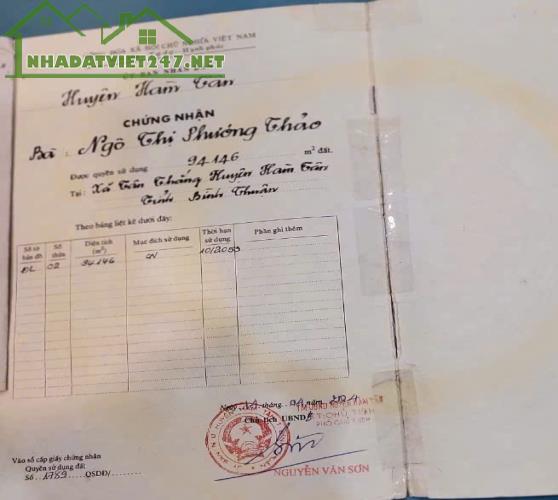 NHADATVIET247.NET
CỘNG HÒA XÃ HỘI CHỦ NGHĨA VIỆT NAM
ỦY BAN NHÂN DÂN
Huyện Hàm Tân
CHỨNG NHẬN
Bà : Ngô Thị Phương Thảo
Được quyền sử dụng 94.146 m² đất.
Tại : Xã Tân Thắng Huyện Hàm Tân
Tỉnh Bình Thuận
Theo bảng liệt kê dưới đây:
Số tờ bản đồ Số thửa Diện tích (m²) Mục đích sử dụng Thời hạn sử dụng Phần ghi thêm
ĐL 02 94.146 10/2053
Ngày tháng năm
Chủ tịch UBND
PHÓ CHỦ TỊCH
NGUYỄN VĂN SƠN
Vào sổ cấp giấy chứng nhận
Quyền sử dụng đất
Số 1789 QSDĐ/